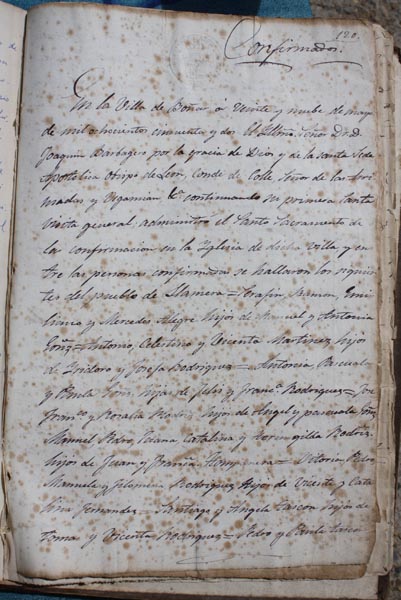 120.
Confirmados.
En la Villa de Boñar à veinte y nuebe de mayo
de mil ochocientos cincuenta y dos el Illmo. Señor Dr. D.
Joaquin Barbagero por la gracia de Dios y de la Santa Sede
Apostolica Obispo de Leon, Conde de Colle Señor de las Arri-
madas y Vegamian &a continuando su primera Santa
visita general administró el Santo Sacramento de
la confirmacion en la Iglesia de dicha Villa y en-
tre las personas confirmadas se hallaron los siguien-
tes del pueblo de Llamera = Serafin Ramon, Emi-
liano y Mercedes Alegre hijos de Manuel y Antonia
Gonz. = Antonio, Celestino y Vicenta Martinez hijos
de Ysidoro y Josefa Rodriguez = Antonia Pascuala
y Paula hijas de Felix y Franca. Rodriguez = Jose
Franco. y Rosalia Rodrz. hijos de Angel y pascuala
Manuel Pedro, Catalina y Rodrz.
hijos de Juan y = Vitoria Pedro
Manuela y Filomena Rodriguez hijos de Vicente y Cata-
lina Fernandez = Santiago y Angela Tascon hijos de
Tomas y Vicenta Rodriguez = Pedro y Tascon